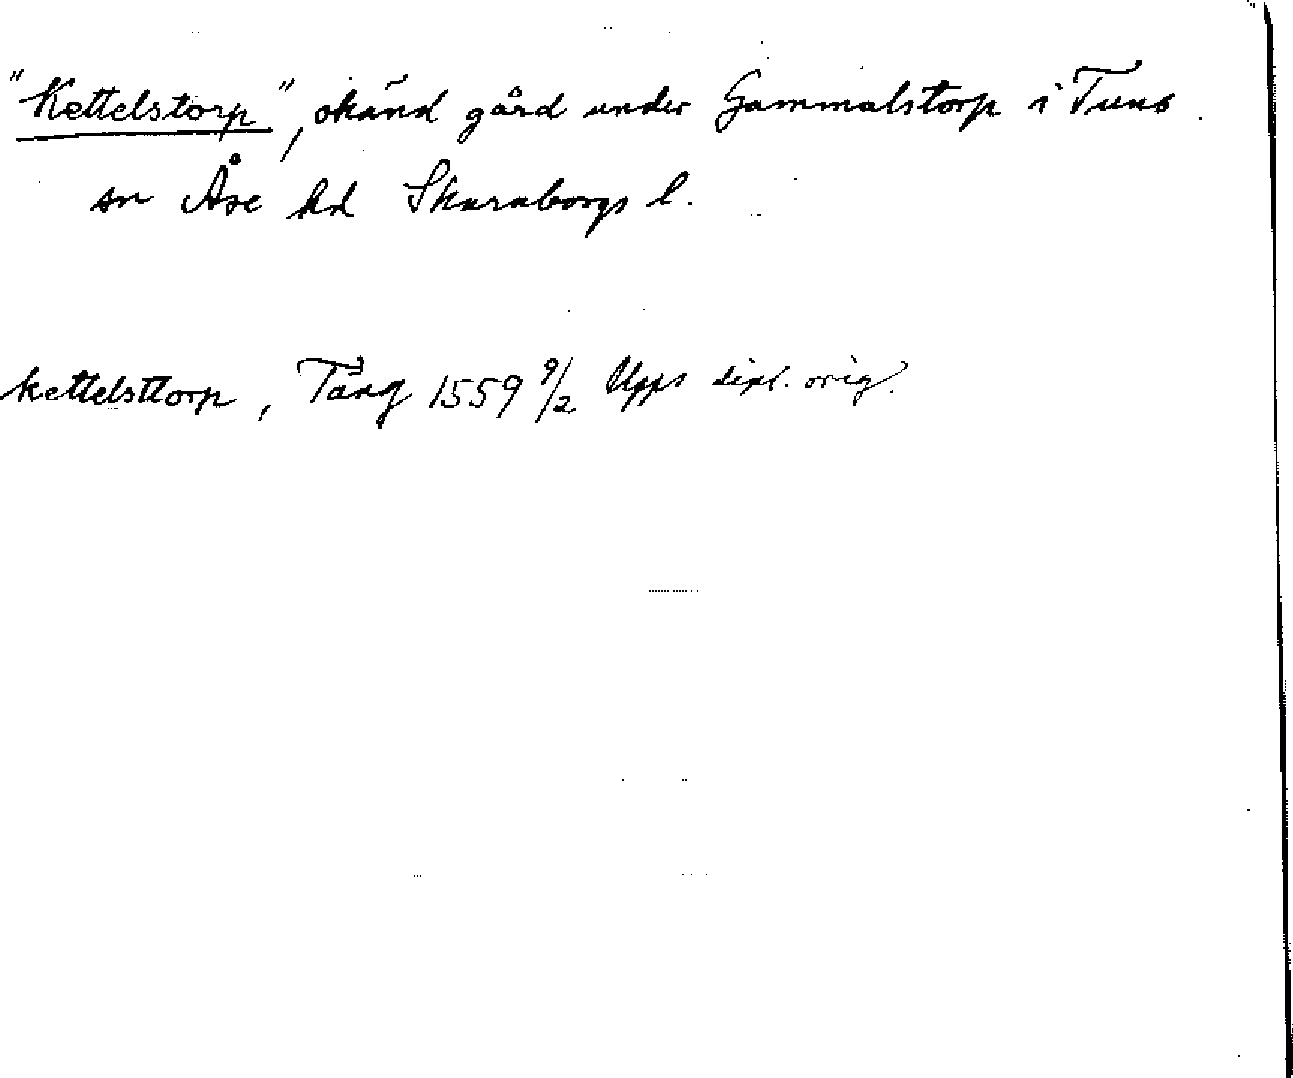 "Kettelstorp", okänd gård under Gammalstorp i Tuns
sn Åse hd Skaraborgs l.
kettelsttorp, Tång 1559 9/2 Upps dipl. orig.